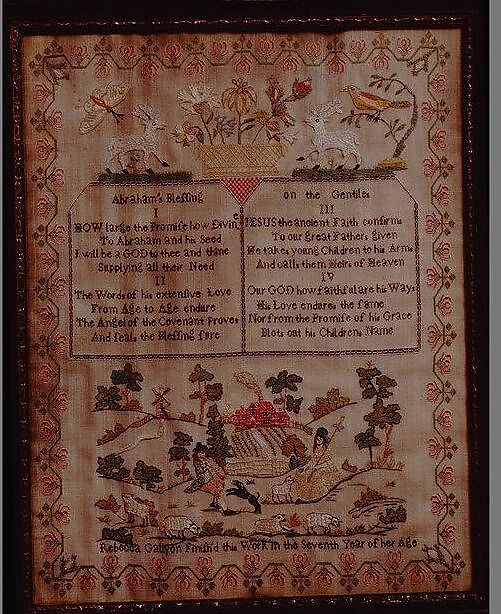 Abraham's Blessing on the Gentiles
I
HOW large the Promise how Divine
To Abraham and his Seed
I will be a GOD to thee and thine
Supplying all their Need
II
The Words of his extensive Love
From Age to Age endure
The Angel of the Covenant Proves
And seals the Blessing sure
III
JESUS the ancient Faith confirms
To our great Fathers given
He takes young Children to his Arms
And calls them Heirs of Heaven
IV
Our GOD how faithful are his Ways
His Love endures the same
Nor from the Promise of his Grace
Blots out his Childrens Name
Rebecca Gallyon Finish'd this Work in the Seventh Year of her Age